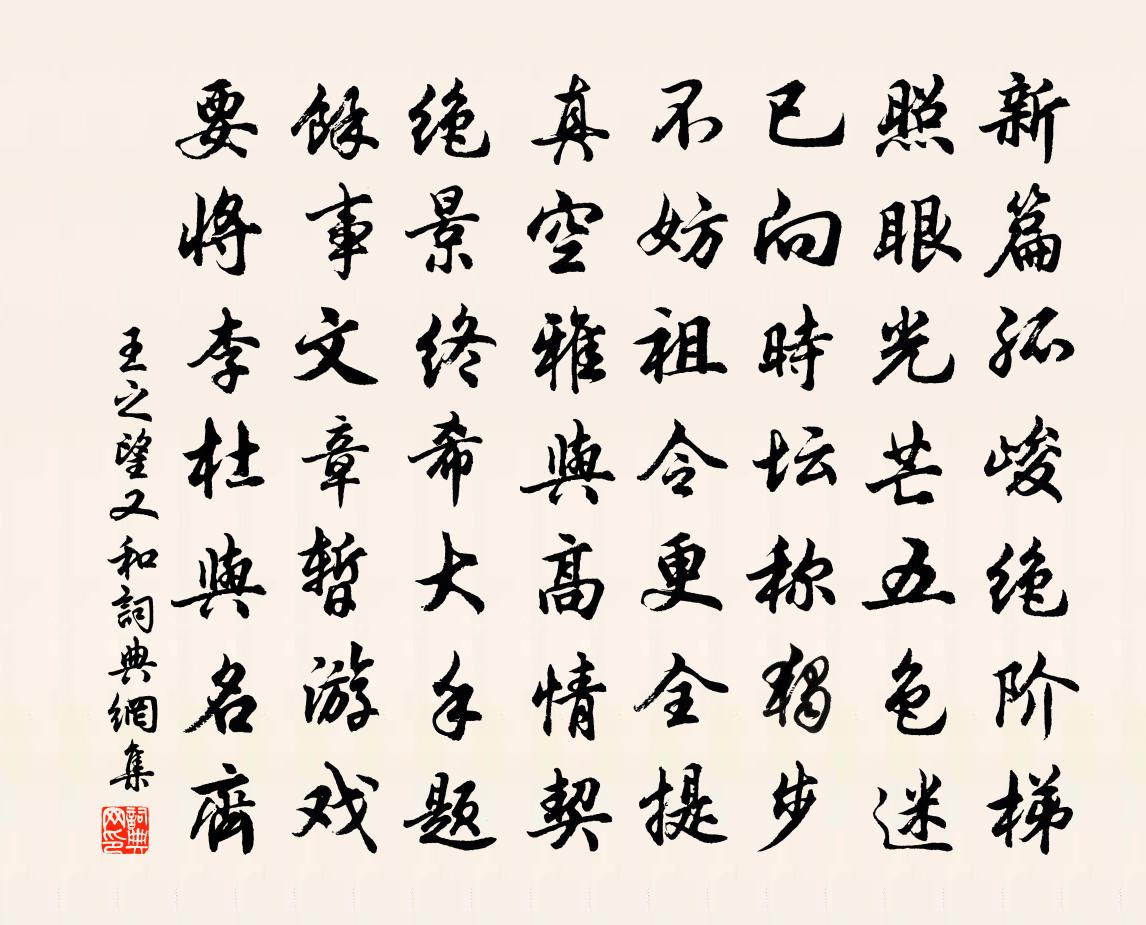 新篇孤峻绝阶梯
照眼光芒五色迷
已向時坛称独步
不妨祖令更全提
真空雅與高情契
绝景终希大手题
餘事文章暂游戏
要将李杜與名齊
王之望又和詞典網集
詞典網印